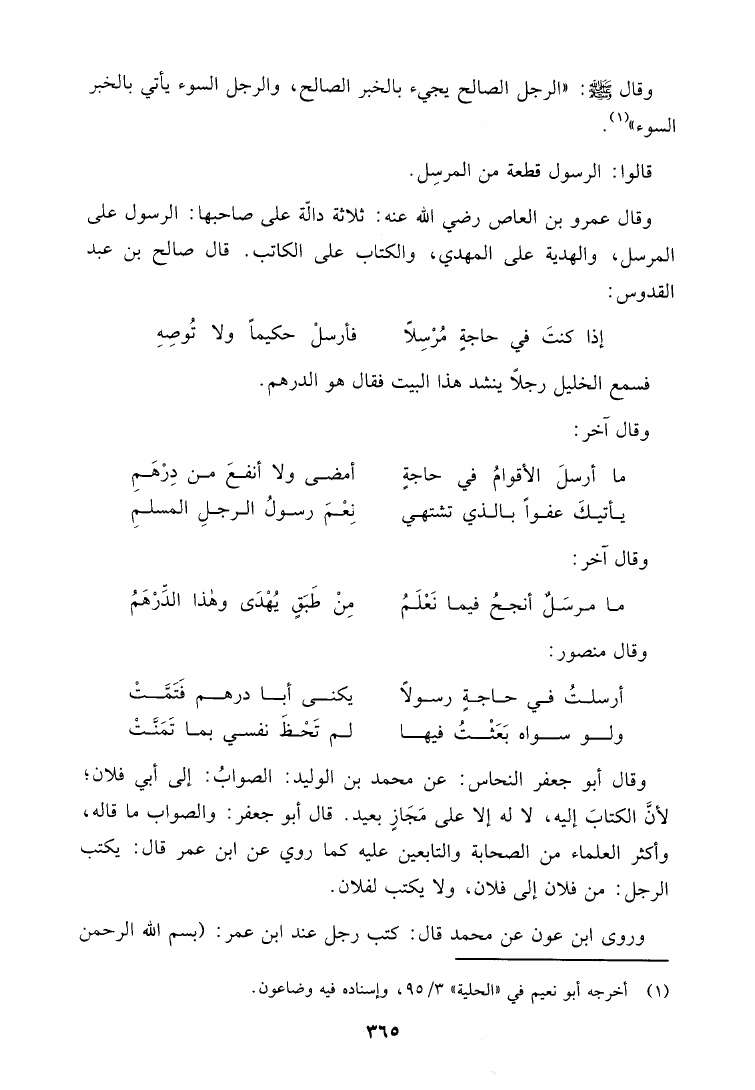 وقال ﷺ: «الرجل الصالح يجيء بالخبر الصالح، والرجل السوء يأتي بالخبر
السوء»(١).
قالوا: الرسول قطعة من المرسِل.
وقال عمرو بن العاص رضي الله عنه: ثلاثة دالّة على صاحبها: الرسول على
المرسل، والهدية على المهدي، والكتاب على الكاتب. قال صالح بن عبد
القدوس:
إذا كنتَ في حاجةٍ مُرْسِلاً فأرسلْ حكيماً ولا تُوصِهِ
فسمع الخليل رجلاً ينشد هذا البيت فقال هو الدرهم.
وقال آخر:
ما أرسلَ الأقوامُ في حاجةٍ أمضى ولا أنفعَ من دِرْهَمِ
يأتيكَ عفواً بالذي تشتهي نِعْمَ رسولُ الرجلِ المسلمِ
وقال آخر:
ما مرسَلٌ أنجحُ فيما نَعْلَمُ مِنْ طَبَقٍ يُهْدَى وهٰذا الدِّرْهَمُ
وقال منصور:
أرسلتُ في حاجةٍ رسولاً يكنى أبا درهم فَتَمَّتْ
ولو سواه بَعَثْتُ فيها لم تَحْظَ نفسي بما تَمَنَّتْ
وقال أبو جعفر النحاس: عن محمد بن الوليد: الصوابُ: إلى أبي فلان؛
لأنَّ الكتابَ إليه، لا له إلا على مَجَازٍ بعيد. قال أبو جعفر: والصواب ما قاله،
وأكثر العلماء من الصحابة والتابعين عليه كما روي عن ابن عمر قال: يكتب
الرجل: من فلان إلى فلان، ولا يكتب لفلان.
وروى ابن عون عن محمد قال: كتب رجل عند ابن عمر: (بسم الله الرحمن
(١) أخرجه أبو نعيم في «الحلية» ٩٥/٣، وإسناده فيه وضاعون.
٣٦٥